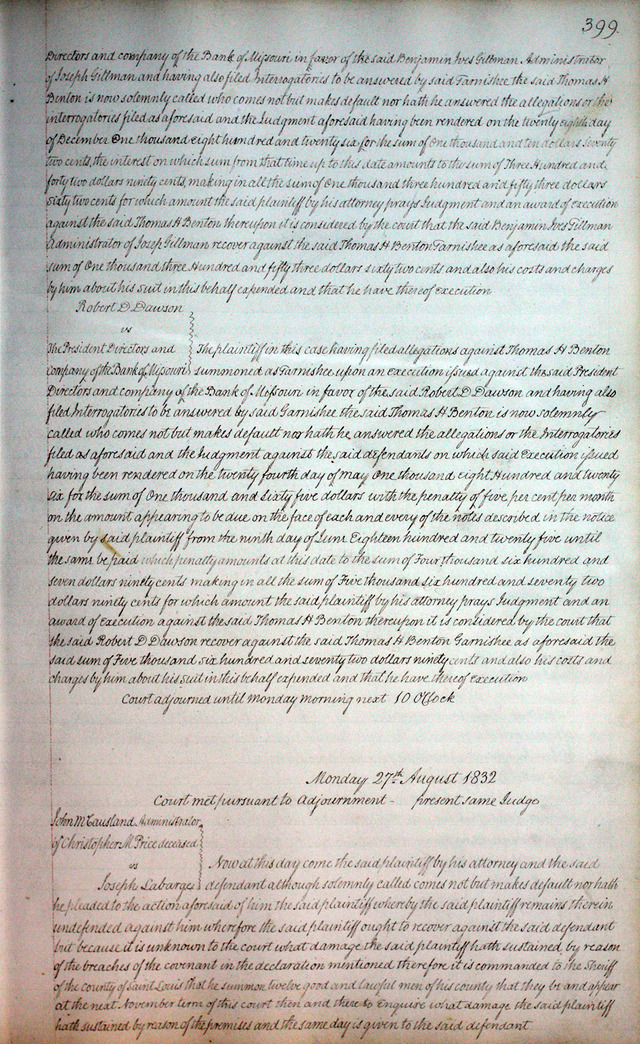 399.
Directors and company of the Bank of Missouri in favor of the said Benjamin Ives Gillman Administrator
of Joseph Gillman and having also filed Interrogatories to be answered by said Garnishee the said Thomas H
Benton is now solemnly called who comes not but makes default nor hath he answered the allegations or the
interrogatories filed as aforesaid and the Judgment aforesaid having been rendered on the twenty eighth day
of December One thousand eight hundred and twenty six for the sum of One thousand and ten dollars Seventy
two cents, the interest on which sum from that time up to this date amounts to the sum of Three Hundred and
forty two dollars ninety cents, making in all the sum of One thousand three hundred and fifty three dollars
Sixty two cents for which amount the said plaintiff by his attorney prays Judgment and an award of execution
against the said Thomas H Benton thereupon it is considered by the court that the said Benjamin Ives Gillman
Administrator of Joseph Gillman recover against the said Thomas H Benton Garnishee as aforesaid the said
sum of One thousand three Hundred and fifty three dollars sixty two cents and also his costs and charges
by him about his suit in this behalf expended and that he have thereof execution
Robert D Dawson
vs
The President Directors and
company of the Bank of Missouri
The plaintiff in this case having filed allegations against Thomas H Benton
summoned as Garnishee upon an execution issued against the said President
Directors and company of the Bank of Missouri in favor of the said Robert D Dawson and having also
filed Interrogatories to be answered by said Garnishee the said Thomas H Benton is now solemnly
called who comes not but makes default nor hath he answered the allegations or the Interrogatories
filed as aforesaid and the Judgment against the said defendants on which said Execution issued
having been rendered on the twenty fourth day of May One thousand eight Hundred and twenty
six for the sum of One thousand and Sixty five dollars with the penalty of five per cent per month
on the amount appearing to be due on the face of each and every of the notes described in the notice
given by said plaintiff from the ninth day of June Eighteen hundred and twenty five until
the same be paid which penalty amounts at this date to the sum of Four thousand six hundred and
seven dollars ninety cents making in all the sum of Five thousand six hundred and seventy two
dollars ninety cents for which amount the said plaintiff by his attorney prays Judgment and an
award of execution against the said Thomas H Benton thereupon it is considered by the court that
the said Robert D Dawson recover against the said Thomas H Benton Garnishee as aforesaid the
said sum of Five thousand six hundred and seventy two dollars ninety cents and also his costs and
charges by him about his suit in this behalf expended and that he have thereof execution
Court adjourned until Monday morning next 10 OClock
Monday 27th August 1832
Court met pursuant to adjournment - present same Judge
John McCausland Administrator
of Christopher M Price deceased
vs
Joseph Labarge
Now at this day come the said plaintiff by his attorney and the said
defendant although solemnly called comes not but makes default nor hath
he pleaded to the action aforesaid of him the said plaintiff whereby the said plaintiff remains therein
undefended against him wherefore the said plaintiff ought to recover against the said defendant
but because it is unknown to the court what damage the said plaintiff hath sustained by reason
of the breaches of the covenant in the declaration mentioned therefore it is commanded to the Sheriff
of the county of Saint Louis that he summon twelve good and lawful men of his county that they be and appear
at the next November term of this court then and there to Enquire what damage the said plaintiff
hath sustained by reason of the premises and the same day is given to the said defendant